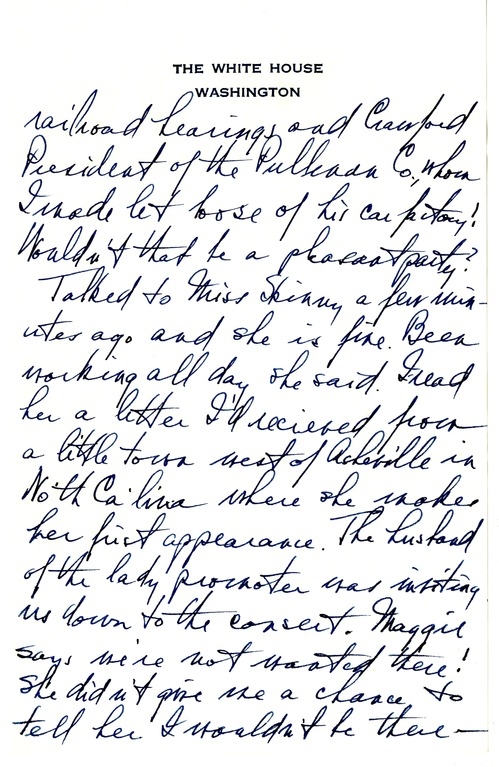 THE WHITE HOUSE
WASHINGTON
railroad hearings and Crawford
President of the Pullman Co., whom
I made let loose of his car factory!
Wouldn't that be a pleasant party?
Talked to Miss Skinny a few min-
utes ago and she is fine. Been
working all day she said. I read
her a letter I'd recieved from
a little town west of Asheville in
No'th Ca'lina where she makes
her first appearance. The husband
of the lady promoter was inviting
us down to the concert. Maggie
says we're not wanted there!
She didn't give me a chance to
tell her I wouldn't be there—